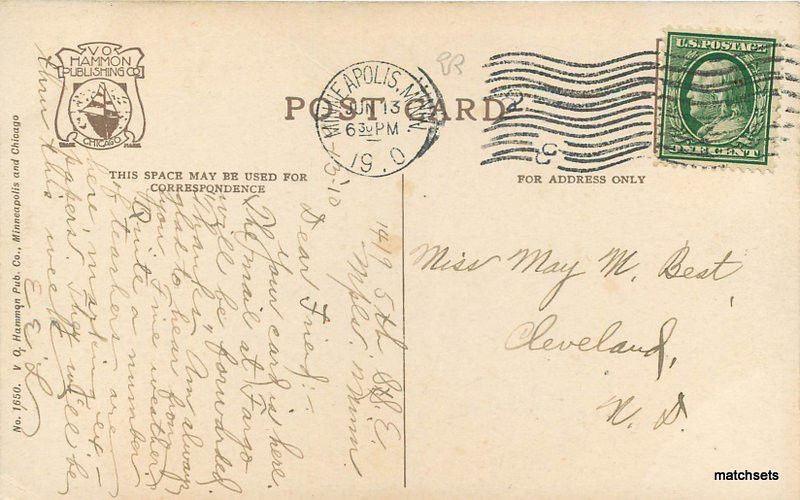 V O
HAMMON
PUBLISHING CO
CHICAGO
TRADE MARK
POST CARD
MINNEAPOLIS, MINN.
JUN 13
6 30 PM
1910
2
U.S. POSTAGE
ONE CENT
THIS SPACE MAY BE USED FOR
CORRESPONDENCE
FOR ADDRESS ONLY
No. 1650. V O. Hammon Pub. Co., Minneapolis and Chicago
1419 5th St S. E.
Mpls. Minn.
Dear Friend:-
Your card is here.
The mail at Fargo
will be forwarded.
Am always
glad to hear from
you. Fine weather.
Quite a number
of teachers are
here, marking ex-
papers. They will be
thru this week
E. E. L
Miss May M. Best
Cleveland,
N. D.
matchsets